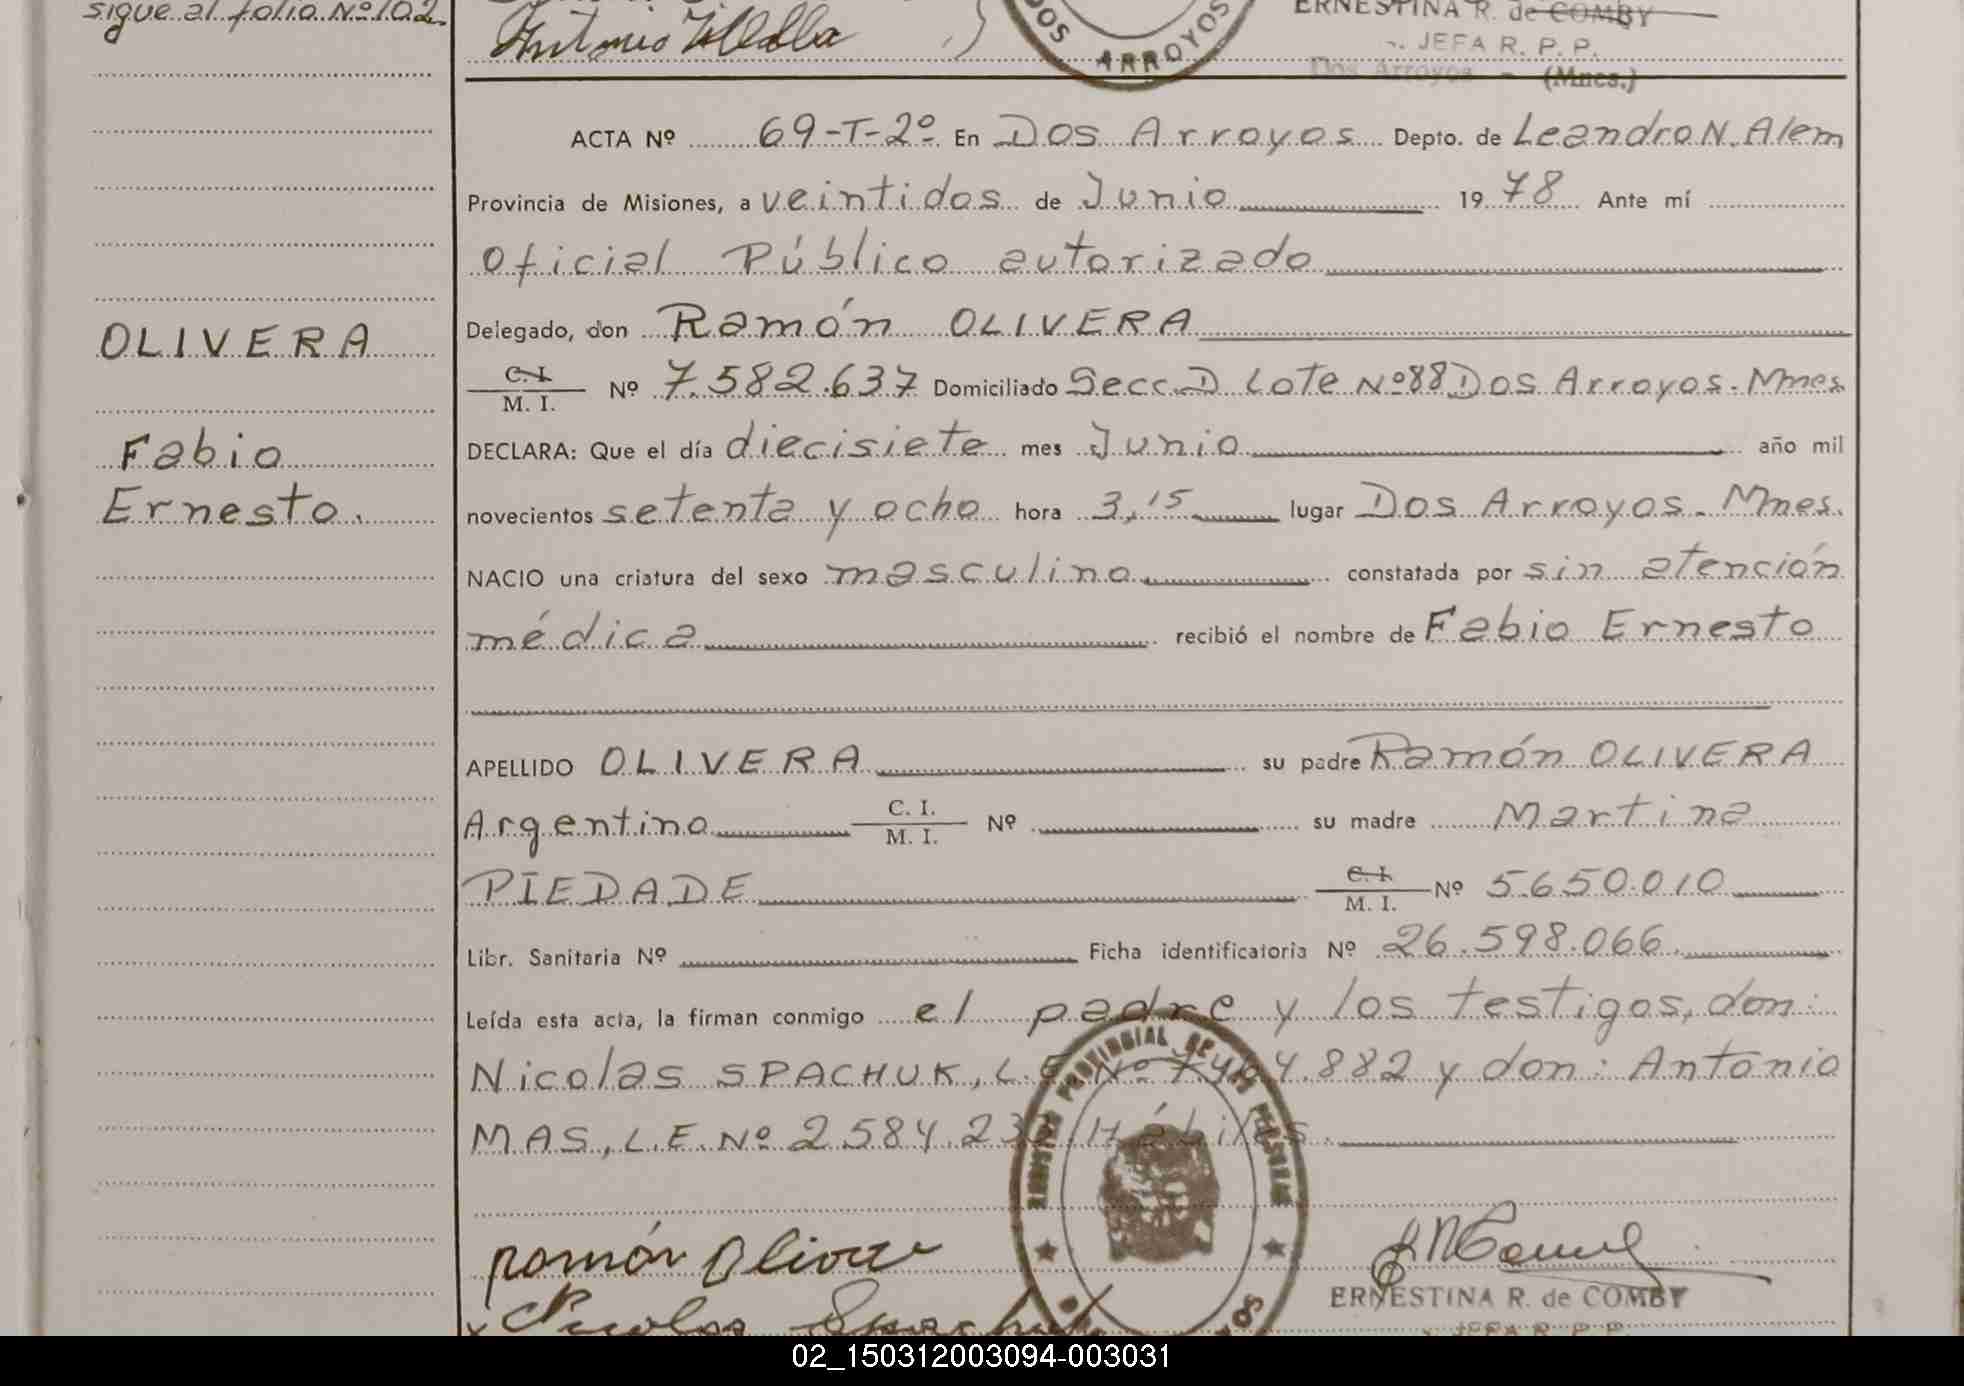 sigue al folio Nº 102.
Antonio Villalba
DOS ARROYOS
ERNESTINA R. de COMBY
JEFA R. P. P.
Dos Arroyos - (Mnes.)
ACTA Nº 69-T-2º En Dos Arroyos Depto. de Leandro N. Alem
Provincia de Misiones, a veintidos de Junio 19 78 Ante mí
Oficial Público autorizado
Delegado, don Ramón OLIVERA
OLIVERA
C. I. / M. I. Nº 7.582.637 Domiciliado Secc. D Lote Nº 88 Dos Arroyos. Mnes.
DECLARA: Que el día diecisiete mes Junio año mil
Fabio
novecientos setenta y ocho hora 3,15 lugar Dos Arroyos. Mnes.
Ernesto.
NACIO una criatura del sexo masculino constatada por sin atención
médica recibió el nombre de Fabio Ernesto
APELLIDO OLIVERA su padre Ramón OLIVERA
Argentino C. I. / M. I. Nº su madre Martina
PIEDADE C. I. / M. I. Nº 5.650.010
Libr. Sanitaria Nº Ficha identificatoria Nº 26.598.066.
Leída esta acta, la firman conmigo el padre y los testigos, don:
Nicolas SPACHUK, L.E. Nº 882 y don: Antonio
MAS, L.E. Nº 2.584.23 Hábiles.
REGISTRO PROVINCIAL DE LAS PERSONAS
Ramón Olivera
ERNESTINA R. de COMBY
Nicolas Spachuk
JEFA R. P. P.
02_150312003094-003031